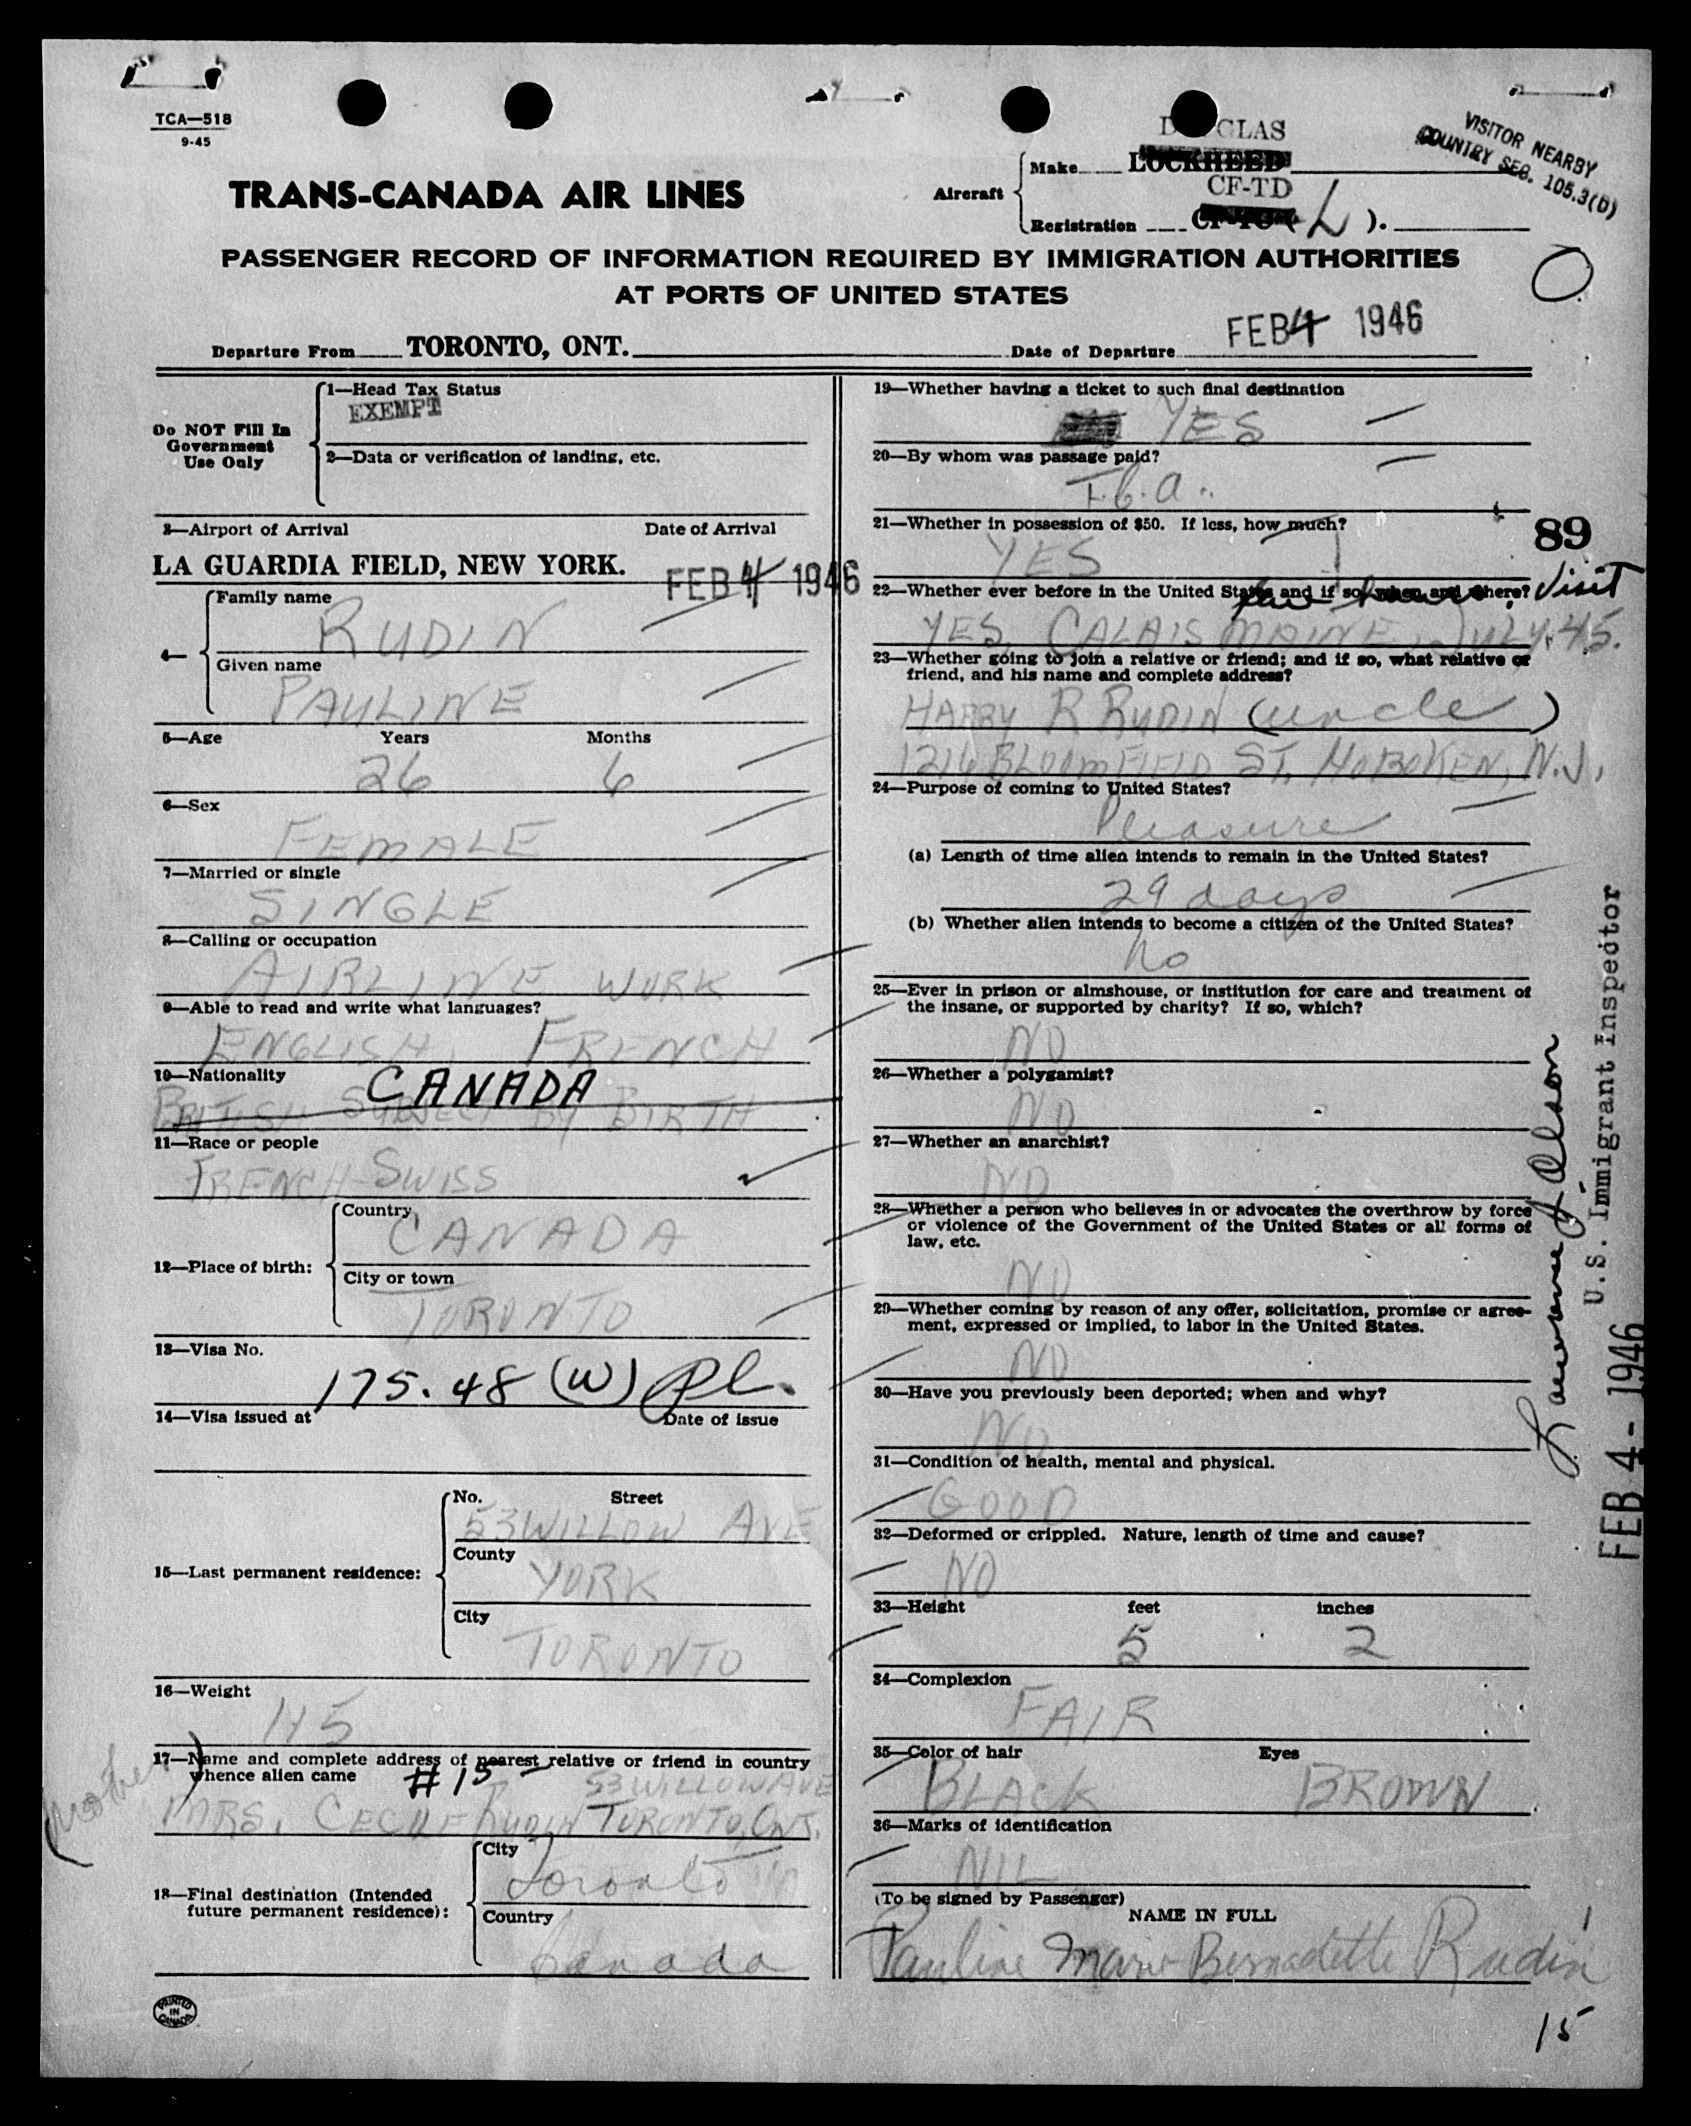 TCA—518
9-45
VISITOR NEARBY
COUNTRY SEC. 105.3(b)
TRANS-CANADA AIR LINES
Aircraft
DOUGLAS
Make LOCKHEED
CF-TD
Registration L ).
PASSENGER RECORD OF INFORMATION REQUIRED BY IMMIGRATION AUTHORITIES
AT PORTS OF UNITED STATES
O
Departure From TORONTO, ONT.
Date of Departure FEB 4 1946
Do NOT Fill In
Government
Use Only
1—Head Tax Status
EXEMPT
2—Data or verification of landing, etc.
3—Airport of Arrival Date of Arrival
LA GUARDIA FIELD, NEW YORK. FEB 4 1946
4—
Family name
RUDIN
Given name
PAULINE
5—Age Years Months
26 6
6—Sex
FEMALE
7—Married or single
SINGLE
8—Calling or occupation
AIRLINE WORK
9—Able to read and write what languages?
ENGLISH, FRENCH
10—Nationality
CANADA
BRITISH SUBJECT BY BIRTH
11—Race or people
FRENCH-SWISS
12—Place of birth:
Country
CANADA
City or town
TORONTO
13—Visa No.
175.48 (W) Pl.
14—Visa issued at Date of issue
15—Last permanent residence:
No. Street
53 WILLOW AVE
County
YORK
City
TORONTO
16—Weight
115
17—Name and complete address of nearest relative or friend in country
whence alien came
#15 — 53 WILLOW AVE
(mother)
MRS. CECILE RUDIN TORONTO, ONT.
18—Final destination (Intended
future permanent residence):
City
Toronto
Country
Canada
PRINTED
IN
CANADA
19—Whether having a ticket to such final destination
YES
20—By whom was passage paid?
T.C.A.
21—Whether in possession of $50. If less, how much?
YES
89
22—Whether ever before in the United States and if so, when and where?
few hours. Visit
YES, CALAIS MAINE, JULY 45.
23—Whether going to join a relative or friend; and if so, what relative or
friend, and his name and complete address?
HARRY R RUDIN (uncle)
1216 BLOOMFIELD ST. HOBOKEN, N.J.
24—Purpose of coming to United States?
Pleasure
(a) Length of time alien intends to remain in the United States?
29 days
(b) Whether alien intends to become a citizen of the United States?
No
25—Ever in prison or almshouse, or institution for care and treatment of
the insane, or supported by charity? If so, which?
NO
26—Whether a polygamist?
NO
27—Whether an anarchist?
NO
28—Whether a person who believes in or advocates the overthrow by force
or violence of the Government of the United States or all forms of
law, etc.
NO
29—Whether coming by reason of any offer, solicitation, promise or agree-
ment, expressed or implied, to labor in the United States.
NO
30—Have you previously been deported; when and why?
NO
31—Condition of health, mental and physical.
GOOD
32—Deformed or crippled. Nature, length of time and cause?
NO
33—Height feet inches
5 2
34—Complexion
FAIR
35—Color of hair Eyes
BLACK BROWN
36—Marks of identification
NIL
(To be signed by Passenger)
NAME IN FULL
Pauline Marie Bernadette Rudin
15
Lawrence A Olson
U.S. Immigrant Inspector
FEB 4 - 1946